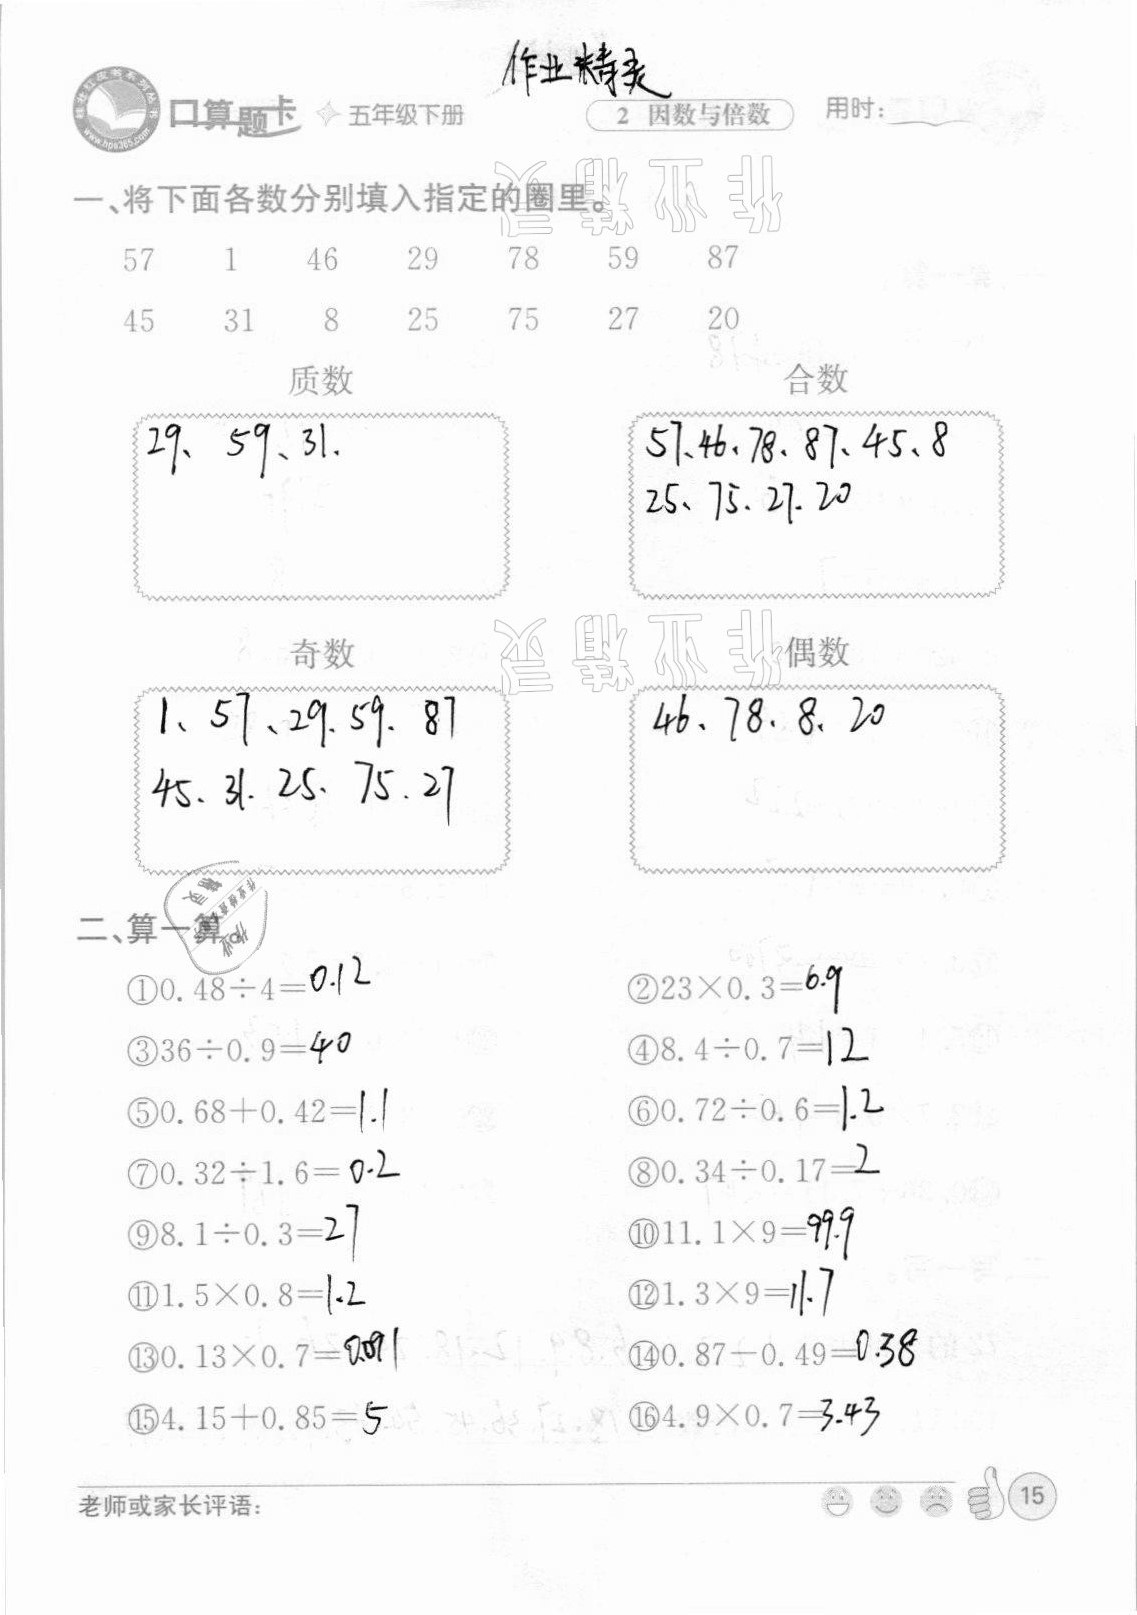 作业精灵
www.hps365.com
口算题卡 五年级下册 2 因数与倍数 用时:
一、将下面各数分别填入指定的圈里。
57 1 46 29 78 59 87
45 31 8 25 75 27 20
质数 合数
29、59、31.
57、46、78、87、45、8
25、75、27.20
奇数 偶数
1、57、29.59.87
45、31.25.75.27
46、78、8、20
作业精灵
作业精灵
二、算一算
①0.48÷4=0.12 ②23×0.3=6.9
③36÷0.9=40 ④8.4÷0.7=12
⑤0.68+0.42=1.1 ⑥0.72÷0.6=1.2
⑦0.32÷1.6=0.2 ⑧0.34÷0.17=2
⑨8.1÷0.3=27 ⑩11.1×9=99.9
⑪1.5×0.8=1.2 ⑫1.3×9=11.7
⑬0.13×0.7=0.091 ⑭0.87-0.49=0.38
⑮4.15+0.85=5 ⑯4.9×0.7=3.43
老师或家长评语:
15